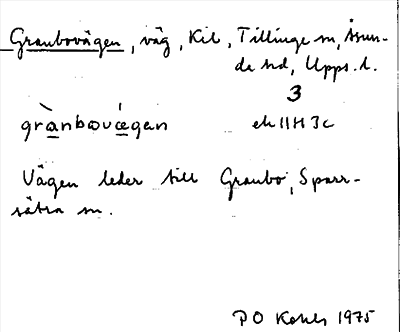 Granbovägen, väg, Kil, Tillinge sn, Åsun-
da hd, Upps. l.
3
grànbωvǽgan ek 11H 3c
Vägen leder till Granbo, Sparr-
sätra sn.
P O 1975